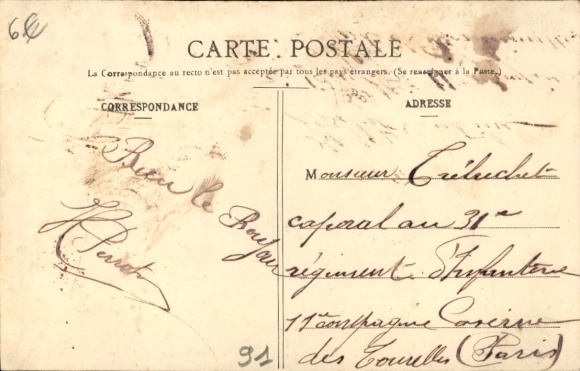 6€
CARTE POSTALE
La Correspondance au recto n'est pas acceptée par tous les pays étrangers. (Se renseigner à la Poste.)
CORRESPONDANCE
Bien le Bonjour
Perrot
91
ADRESSE
Monsieur Trébuchet
caporal au 31e
régiment d'Infanterie
11e compagnie Caserne
des Tourelles (Paris)